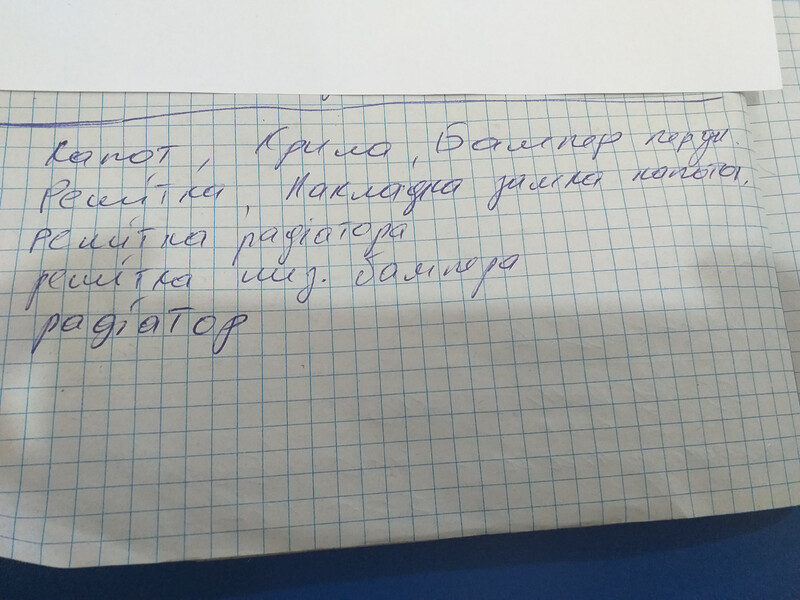 Капот, Крила, Бампер передн.
Решітка, Накладка замка капота.
Решітка радіатора
решітка низ. бампера
радіатор